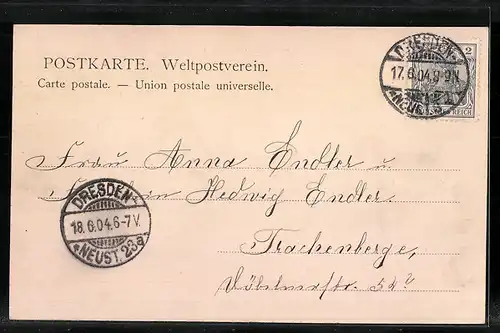 POSTKARTE. Weltpostverein.
Carte postale. — Union postale universelle.
DRESDEN
17.6.04.8-9N.
NEUST.
2
REICH
Frau Anna Endler u.
Hedwig Endler
DRESDEN
18.6.04.6-7V.
*NEUST.23a
Trachenberge,